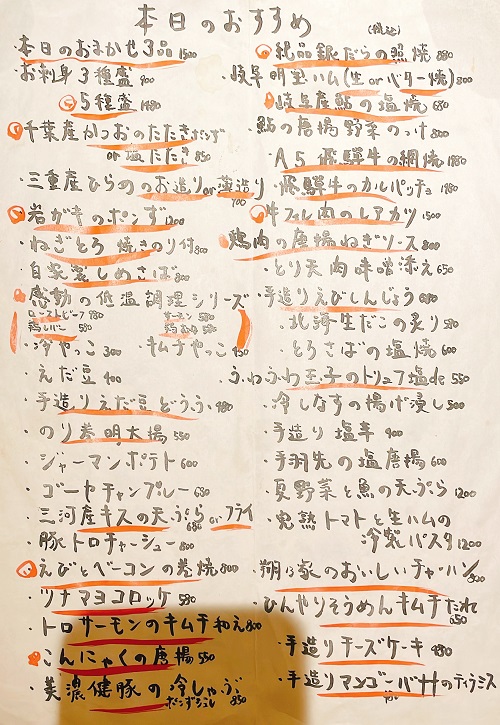 本日のおすすめ
(税込)
・本日のおまかせ3品 1500
お刺身3種盛 900
5種盛 1480
千葉産かつおのたたきポンず
or 塩たたき 850
・三重産ひらめのお造り or 薄造り
900
岩ガキのポンず 1200
・ねぎとろ 焼きのり付 800
・自家製しめさば 800
感動の低温調理シリーズ
ローストビーフ 980 サーモン 580
鶏レバー 580
・冷やっこ 300 ・キムチやっこ 450
・えだ豆 400
・手造りえだ豆どうふ 480
・のり巻明太揚 550
・ジャーマンポテト 600
・ゴーヤチャンプルー 680
・三河産キスの天ぷら or フライ
680
・豚トロチャーシュー 800
えびとベーコンの巻焼 800
・ツナマヨコロッケ 580
・トロサーモンのキムチ和え 800
こんにゃくの唐揚 550
・美濃健豚の冷しゃぶ
ポンずジュレ 850
・絶品銀だらの照焼 880
・岐阜明宝ハム(生orバター焼) 800
・岐阜産鮎の塩焼 680
・鮎の唐揚野菜のっけ 800
・A5飛騨牛の網焼 1980
・飛騨牛のカルパッチョ 1980
牛フィレ肉のレアカツ 1500
鶏肉の唐揚ねぎソース 800
・とり天肉味噌添え 650
・手造りえびしんじょう 680
・北海生だこの炙り 580
・とろさばの塩焼 600
・ふわふわ玉子のトリュフ塩de 550
・冷しなすの揚げ浸し 500
・手造り塩辛 400
・手羽先の塩唐揚 600
・夏野菜と魚の天ぷら 1200
・完熟トマトと生ハムの
冷製パスタ 1200
・翔乃家のおいしいチャーハン 800
ひんやりそうめんキムチだれ
650
・手造りチーズケーキ 480
・手造りマンゴーババナのティラミス
480